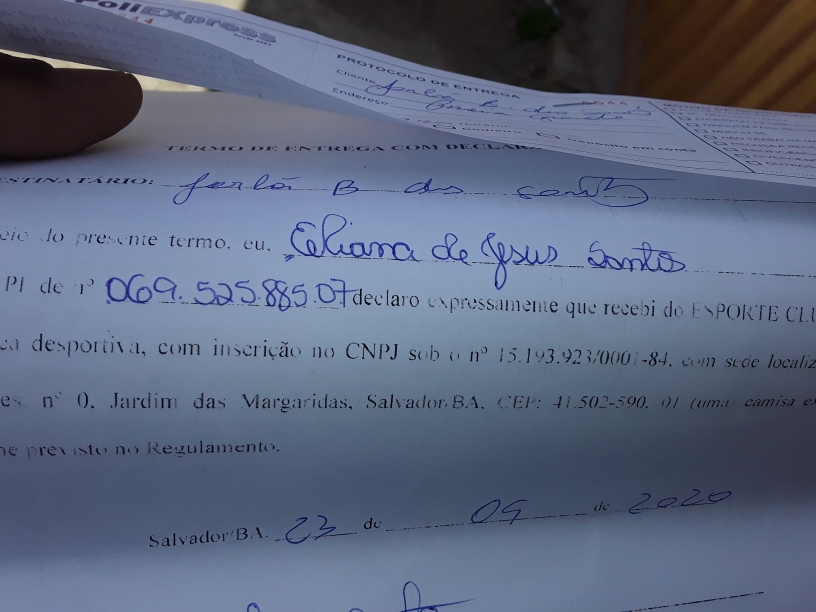 PoliExpress
PROTOCOLO DE ENTREGA
Cliente:
Endereço:
TERMO DE ENTREGA COM DECLAR
ESTINATÁRIO: B dos
eio do presente termo, eu, Eliana de Jesus Santos
PF de nº 069.525.885.07 declaro expressamente que recebi do ESPORTE CLU
ca desportiva, com inscrição no CNPJ sob o nº 15.193.923/0001-84, com sede localiz
es, nº 0, Jardim das Margaridas, Salvador/BA, CEP: 41.502-590, 01 (uma) camisa
me previsto no Regulamento.
Salvador/BA, 23 de 09 de 2020